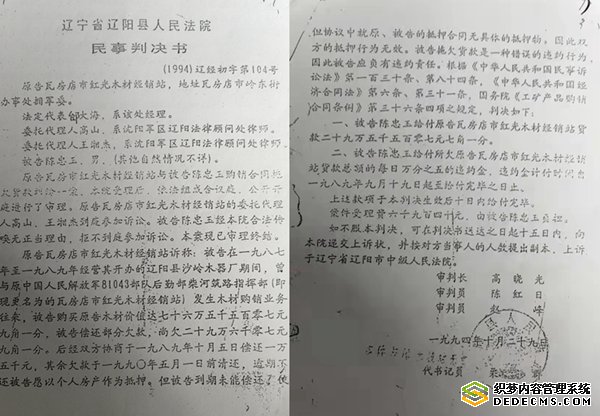 辽宁省辽阳县人民法院
民事判决书
(1994)辽经初字第104号
原告瓦房店市红光木材经销站，地址瓦房店市岭东街
办事处拥军委。
法定代表邹大海，系该处经理。
委托代理人高山，系沈阳军区辽阳法律顾问处律师。
委托代理人王湘杰，系沈阳军区辽阳法律顾问处律师。
被告陈忠玉，男，(其他自然情况不详)。
原告瓦房店市红光木材经销站与被告陈忠玉购销合同拖
欠货款纠纷一案，本院受理后，依法组成合议庭，公开开
庭进行了审理。原告瓦房店市红光木材经销站的委托代理
人高山、王湘杰到庭参加诉讼。被告陈忠玉经本院合法传
唤无正当理由，拒不到庭参加诉讼。本案现已审理终结。
原告瓦房店市红光木材经销站诉称：被告在一九八七
年至一九八九年经营其开办的辽阳县沙岭木器厂期间，曾
与原中国人民解放军81043部队后勤部柴河筑路指挥部(即
现更名为的瓦房店市红光木材经销站)发生木材购销业务
往来，被告购买原告木材价值达七十六万五千五百零七元
九角一分，被告偿还部分欠款，尚欠二十九万六千零七元
九角一分。后经双方协商于一九八九年十月五日偿还一万
五千元，其余欠款于一九九〇年五月一日前清还，逾期不
还被告愿以个人房产作为抵押。但被告到期未能偿还了使
但协议中就原、被告的抵押合同无具体的抵押物，因此双
方的抵押行为无效。被告拖欠货款是一种错误的违约行为，
因此被告应负有违约责任。根据《中华人民共和国民事诉
讼法》第一百三十条、第八十四条，《中华人民共和国经
济合同法》第六条、第三十一条，国务院《工矿产品购销
合同条例》第三十六条四项之规定，判决如下：
一、被告陈忠玉给付原告瓦房店市红光木材经销站货
款二十九万五千五百零七元九角一分。
二、被告陈忠玉给付所欠原告瓦房店市红光木材经销
站货款总额的每日万分之五的违约金，违约金计付时间自
一九八九年九月十九日起至给付完毕之日止。
上述款项于本判决生效后十日内给付完毕。
案件受理费六千九百四十元，由被告陈忠玉负担。
如不服本判决，可在判决书送达之日起十五日内，向
本院递交上诉状，并按对方当事人的人数提出副本，上诉
于辽宁省辽阳市中级人民法院。
审判长 高晓光
审判员 陈红日
审判员 赵 峰
一九九四年十月二十九日
代书记员
织梦内容管理系统
DEDECMS.COM